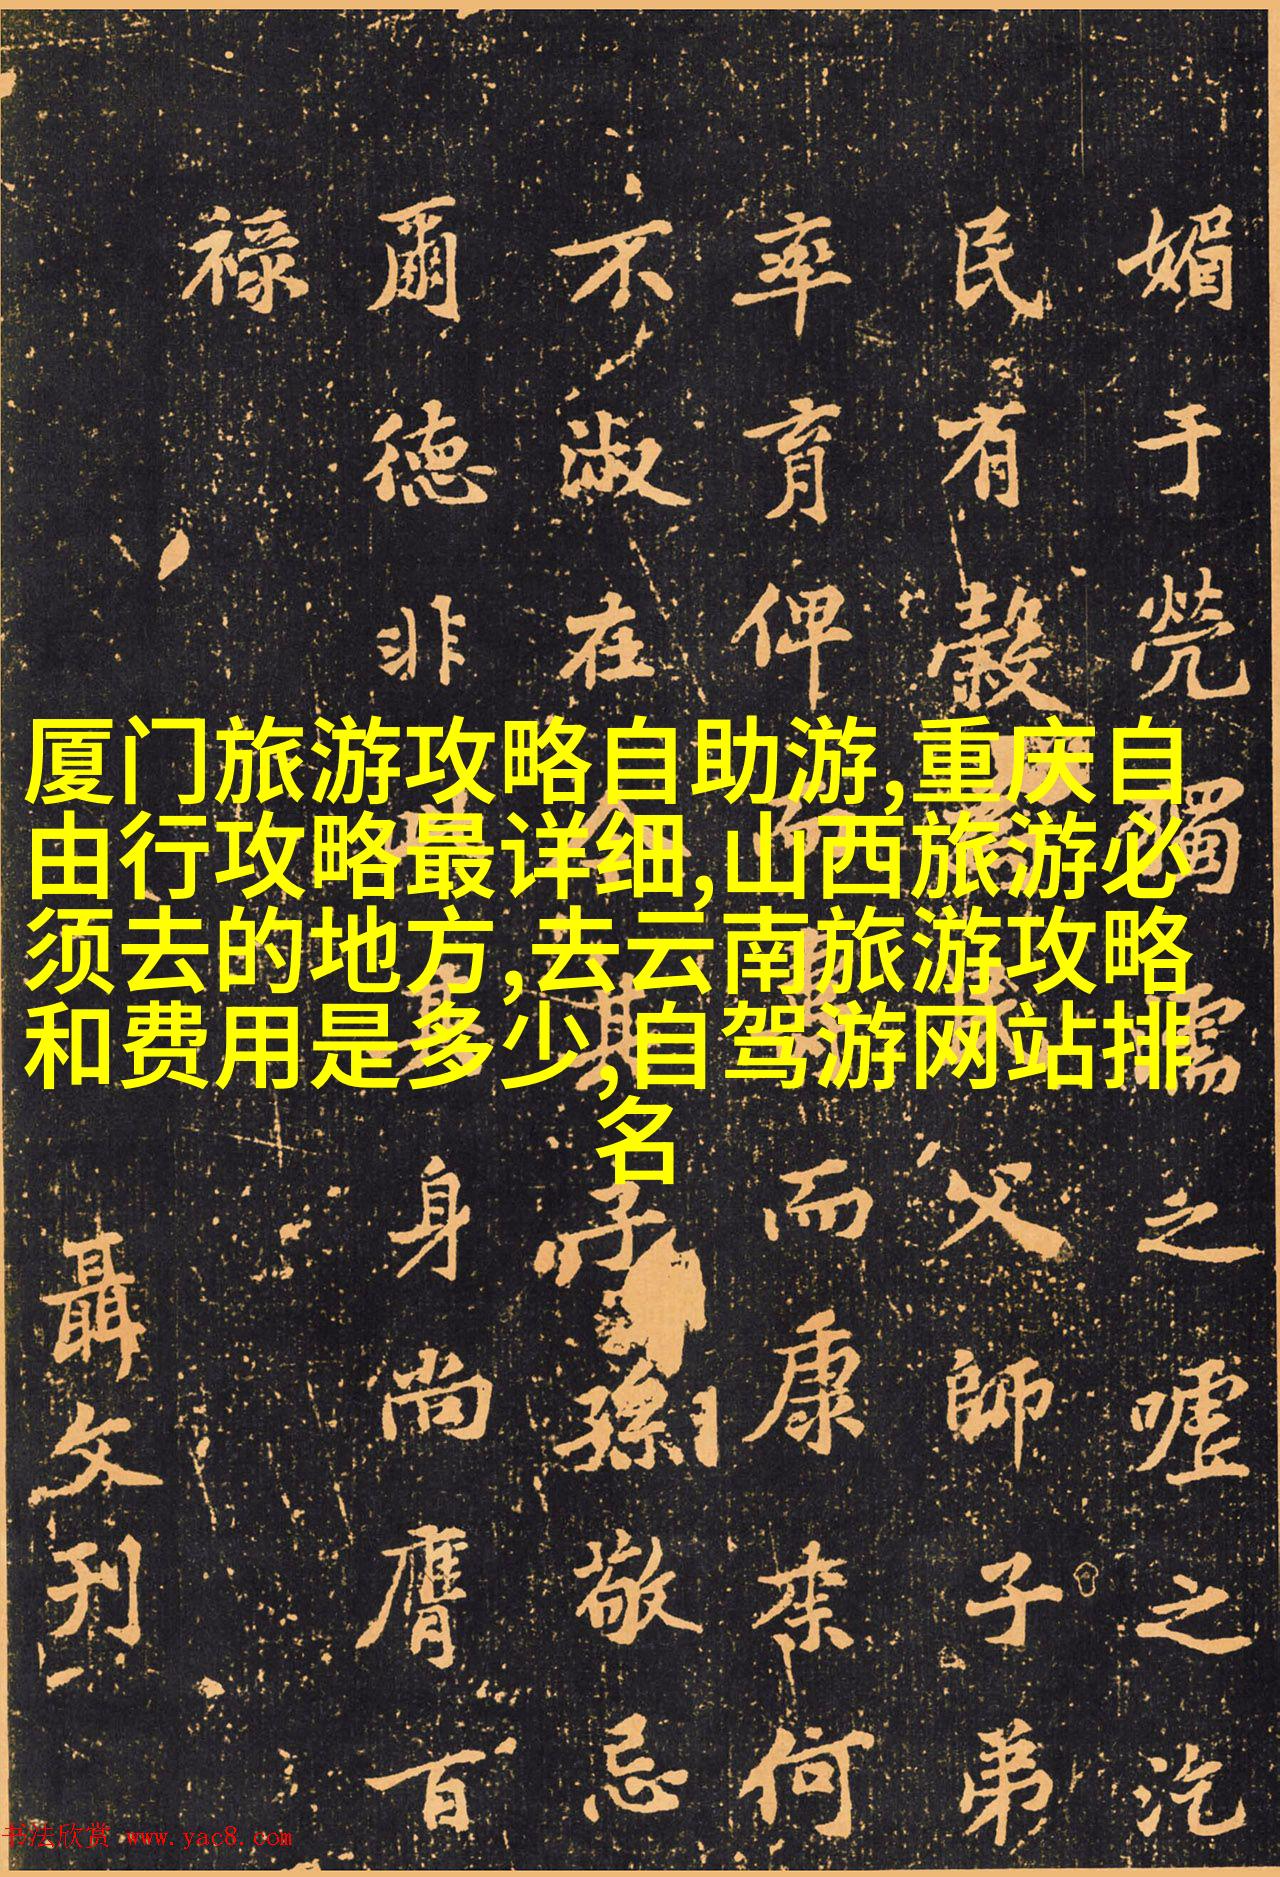 厦门旅游攻略自助游,重庆自
由行攻略最详细,山西旅游必
须去的地方,去云南旅游攻略
和费用是多少,自驾游网站排
名
媚于煢獨濡之噓之汔
民有穀父師子弟
率育俾而而康来何
不淑在今其子孫敬忌
爾德非身尚膺百
祿
聶文刊
书法欣赏 www.yac8.com